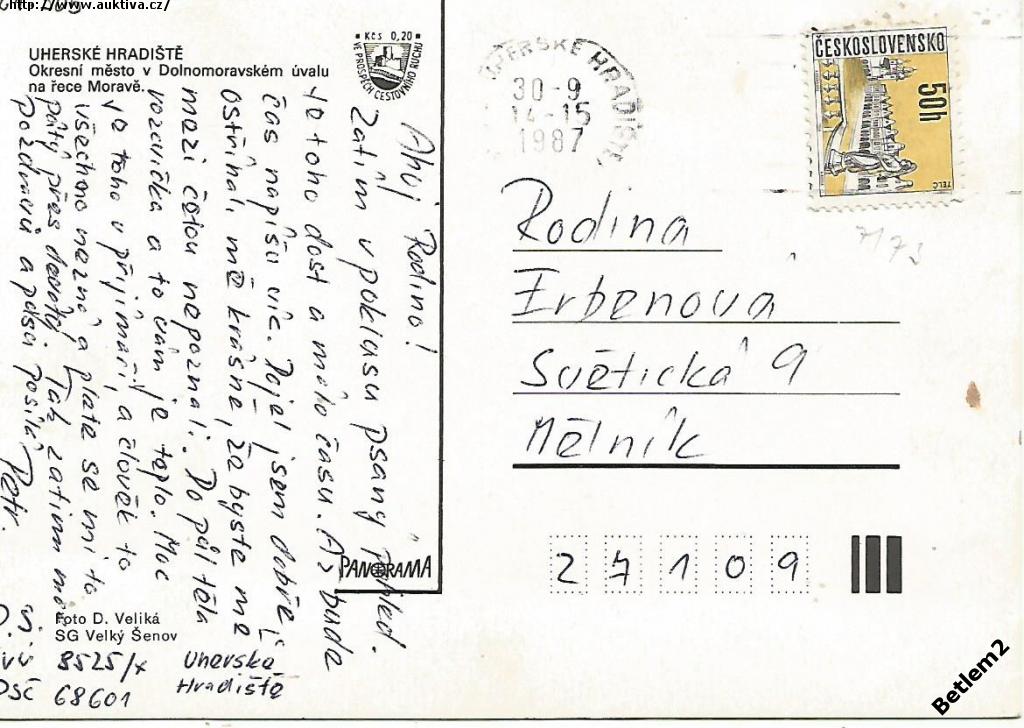 http://www.auktiva.cz/
UHERSKÉ HRADIŠTĚ
Okresní město v Dolnomoravském úvalu
na řece Moravě.
Kčs 0,20
VE PROSPĚCH CESTOVNÍHO RUCHU
UHERSKÉ HRADIŠTĚ
30-9
14-15
1987
ČESKOSLOVENSKO
50h
TELČ
7173
Ahoj Rodino!
Zatím v poklusu psaný pohled.
Je toho dost a málo času. Až bude
čas napíšu víc. Dojel jsem dobře
ostříhali mě krásně, že byste me
mezi četou nepoznali. Do půl těla
rozcvička a to vám je teplo. Moc
je toho v přijímači, a člověk to
všechno nezná a plete se mi to
pátý přes devátý. Tak zatím
Pozdravů a pusu posílá
Petr.
Rodina
Erbenova
Světická 9
Mělník
27109
PANORAMA
Foto D. Veliká
SG Velký Šenov
8525/x Uherské
Hradiště
PSČ 68601
Betlem2